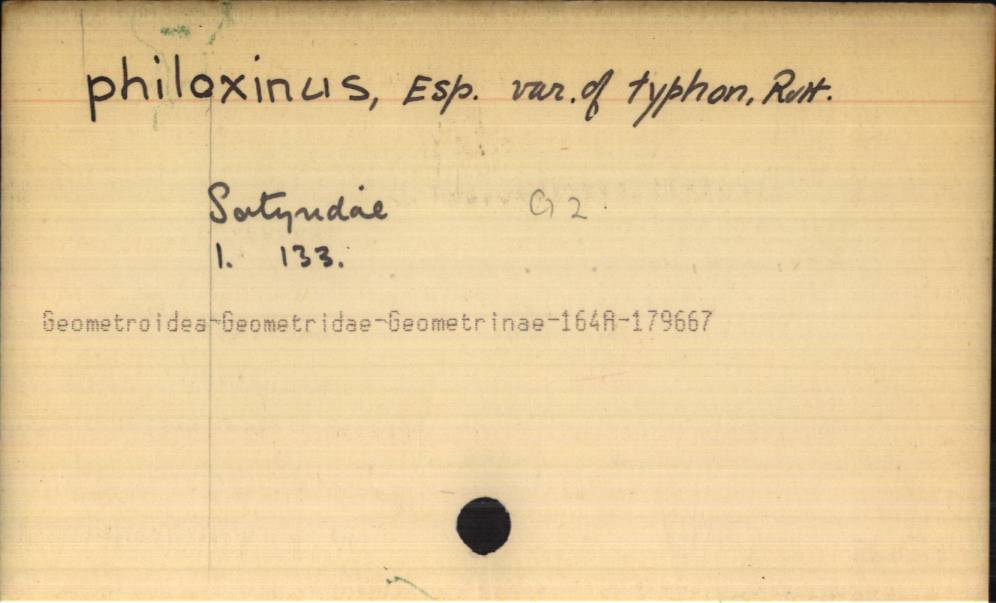 philoxinus, Esp. var. of typhon, Rott.
Satyridae G 2
1. 133.
Geometroidea-Geometridae-Geometrinae-164A-179667